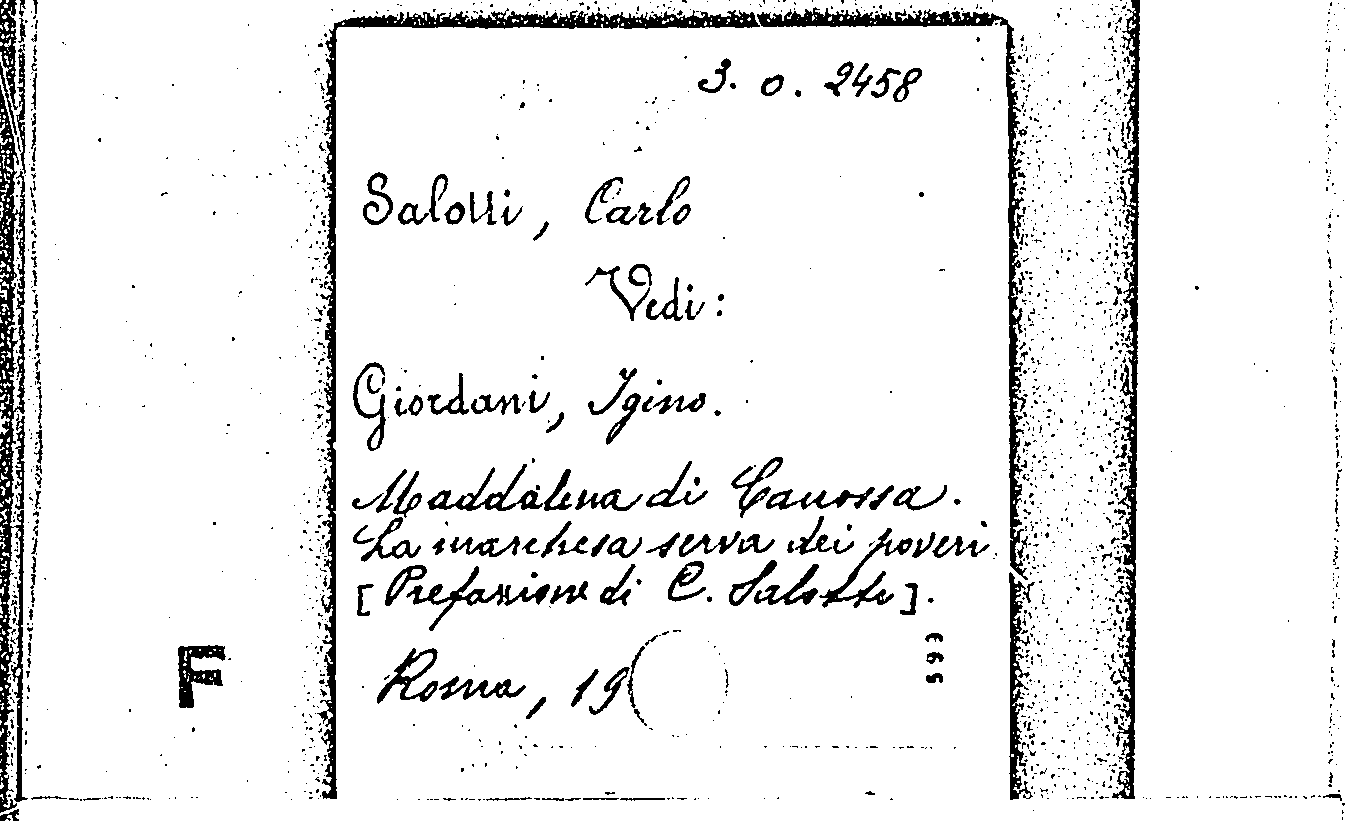 3. o. 2458
Salotti, Carlo
Vedi:
Giordani, Igino.
Maddalena di Canossa.
La marchesa serva dei poveri
[Prefazione di C. Salotti].
Roma, 19
593
F